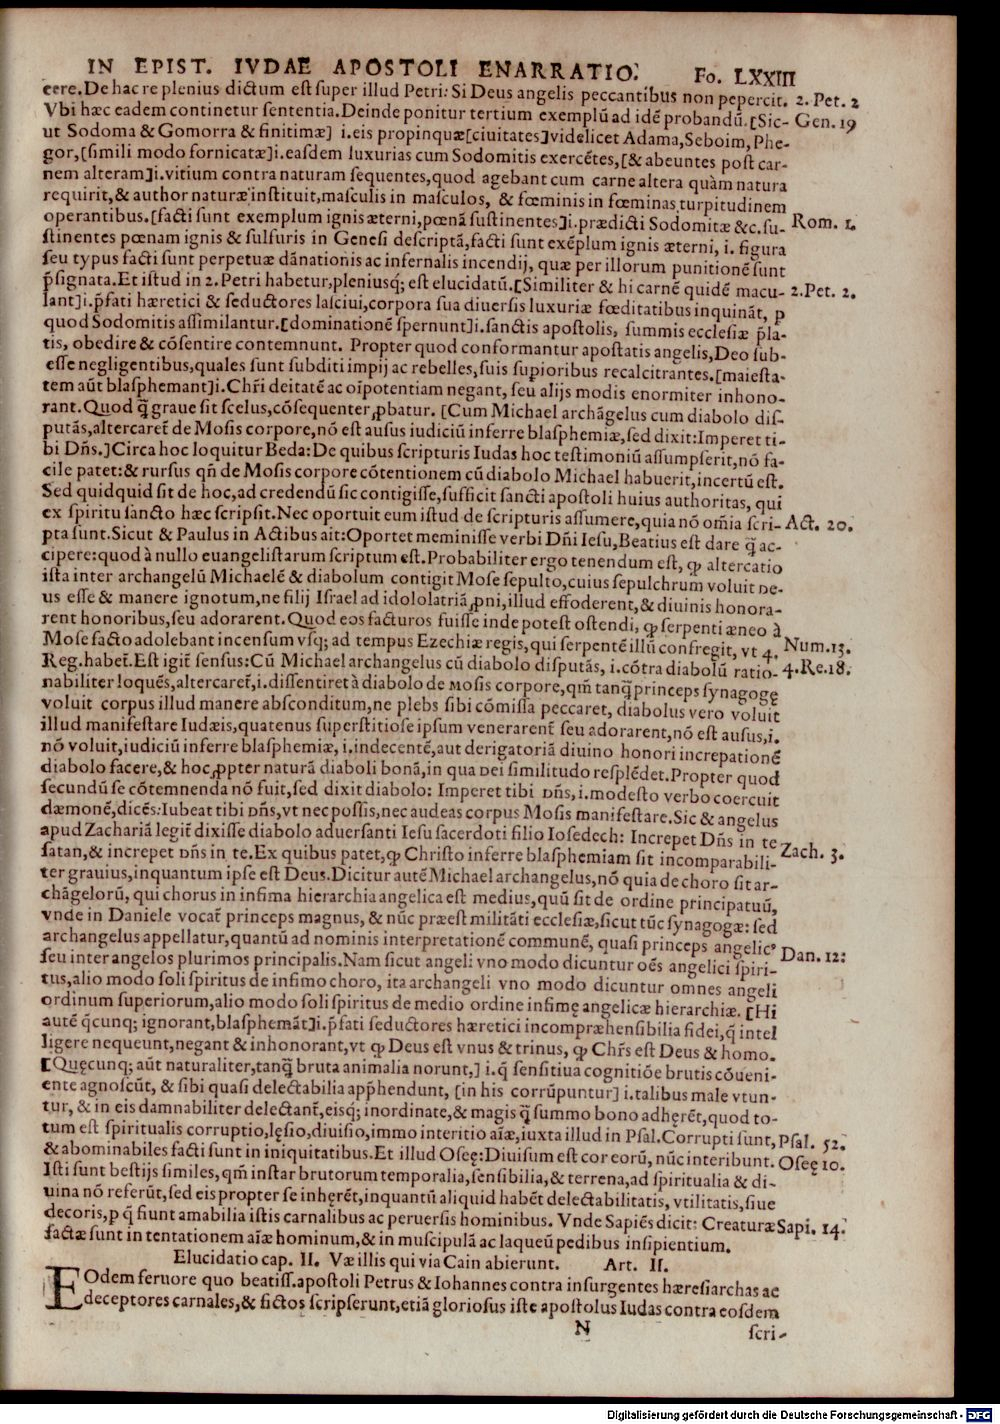 IN EPIST. IVDAE APOSTOLI ENARRATIO. Fo. LXXIII
cere. De hac re plenius dictum est super illud Petri: Si Deus angelis peccantibus non pepercit. 2. Pet. 2
Vbi hæc eadem continetur sententia. Deinde ponitur tertium exemplũ ad idẽ probandũ. [Sic- Gen. 19
ut Sodoma & Gomorra & finitimæ] i. eis propinquæ [ciuitates] videlicet Adama, Seboim, Phe-
gor, [simili modo fornicatæ] i. easdem luxurias cum Sodomitis exercẽtes, [& abeuntes post car-
nem alteram] i. vitium contra naturam sequentes, quod agebant cum carne altera quàm natura
requirit, & author naturæ instituit, masculis in masculos, & fœminis in fœminas turpitudinem
operantibus. [facti sunt exemplum ignis æterni, pœnã sustinentes] i. prædicti Sodomitæ &c. su- Rom. 1.
stinentes pœnam ignis & sulfuris in Genesi descriptã, facti sunt exẽplum ignis æterni, i. figura
seu typus facti sunt perpetuæ dãnationis ac infernalis incendij, quæ per illorum punitionẽ sunt
p̃signata. Et istud in 2. Petri habetur, pleniusq; est elucidatũ. [Similiter & hi carnẽ quidẽ macu- 2. Pet. 2.
lant] i. p̃fati hæretici & seductores lasciui, corpora sua diuersis luxuriæ fœditatibus inquinãt, p
quod Sodomitis assimilantur. [dominationẽ spernunt] i. sanctis apostolis, summis ecclesiæ p̃la-
tis, obedire & cõsentire contemnunt. Propter quod conformantur apostatis angelis, Deo sub-
esse negligentibus, quales sunt subditi impij ac rebelles, suis supioribus recalcitrantes. [maiesta-
tem aũt blasphemant] i. Chr̃i deitatẽ ac oĩpotentiam negant, seu alijs modis enormiter inhono-
rant. Quod q̃ graue sit scelus, cõsequenter ꝓbatur. [Cum Michael archãgelus cum diabolo dis-
putãs, altercaret̃ de Mosis corpore, nõ est ausus iudiciũ inferre blasphemiæ, sed dixit: Imperet ti-
bi Dñs.] Circa hoc loquitur Beda: De quibus scripturis Iudas hoc testimoniũ assumpserit, nõ fa-
cile patet: & rursus qñ de Mosis corpore cõtentionem cũ diabolo Michael habuerit, incertũ est.
Sed quidquid sit de hoc, ad credendũ sic contigisse, sufficit sancti apostoli huius authoritas, qui
ex spiritu sancto hæc scripsit. Nec oportuit eum istud de scripturis assumere, quia nõ om̃ia scri- Act. 20.
pta sunt. Sicut & Paulus in Actibus ait: Oportet meminisse verbi Dñi Iesu, Beatius est dare q̃ ac-
cipere: quod à nullo euangelistarum scriptum est. Probabiliter ergo tenendum est, ꝙ altercatio
ista inter archangelũ Michaelẽ & diabolum contigit Mose sepulto, cuius sepulchrum voluit De-
us esse & manere ignotum, ne filij Israel ad idololatriã ꝓni, illud effoderent, & diuinis honora-
rent honoribus, seu adorarent. Quod eos facturos fuisse inde potest ostendi, ꝙ serpenti æneo à
Mose facto adolebant incensum vsq; ad tempus Ezechiæ regis, qui serpentẽ illũ confregit, vt 4. Num. 13.
Reg. habet̃. Est igit̃ sensus: Cũ Michael archangelus cũ diabolo disputãs, i. cõtra diabolũ ratio- 4. Re. 18.
nabiliter loquẽs, altercaret̃, i. dissentiret à diabolo de Mosis corpore, qm̃ tanq̃ princeps synagogę
voluit corpus illud manere absconditum, ne plebs sibi cõmissa peccaret, diabolus vero voluit
illud manifestare Iudæis, quatenus superstitiose ipsum venerarent̃ seu adorarent, nõ est ausus, i.
nõ voluit, iudiciũ inferre blasphemiæ, i. indecentẽ, aut derigatoriã diuino honori increpationẽ
diabolo facere, & hoc ꝓpter naturã diaboli bonã, in qua Dei similitudo resplẽdet. Propter quod
secundũ se cõtemnenda nõ fuit, sed dixit diabolo: Imperet tibi Dñs, i. modesto verbo coercuit
dæmonẽ, dicẽs: Iubeat tibi Dñs, vt nec possis, nec audeas corpus Mosis manifestare. Sic & angelus
apud Zachariã legit̃ dixisse diabolo aduersanti Iesu sacerdoti filio Iosedech: Increpet Dñs in te
satan, & increpet Dñs in te. Ex quibus patet, ꝙ Christo inferre blasphemiam sit incomparabili- Zach. 3.
ter grauius, inquantum ipse est Deus. Dicitur autẽ Michael archangelus, nõ quia de choro sit ar-
chãgelorũ, qui chorus in infima hierarchia angelica est medius, quũ sit de ordine principatuũ,
vnde in Daniele vocat̃ princeps magnus, & nũc præest militãti ecclesiæ, sicut tũc synagogæ: sed
archangelus appellatur, quantũ ad nominis interpretationẽ communẽ, quasi princeps angelicꝰ
seu inter angelos plurimos principalis. Nam sicut angeli vno modo dicuntur oẽs angelici spiri- Dan. 12.
tus, alio modo soli spiritus de infimo choro, ita archangeli vno modo dicuntur omnes angeli
ordinum superiorum, alio modo soli spiritus de medio ordine infimę angelicæ hierarchiæ. [Hi
autẽ q̃cunq; ignorant, blasphemãt] i. p̃fati seductores hæretici incompræhensibilia fidei, q̃ intel
ligere nequeunt, negant & inhonorant, vt ꝙ Deus est vnus & trinus, ꝙ Chr̃s est Deus & homo.
[Quęcunq; aũt naturaliter, tanq̃ bruta animalia norunt,] i. q̃ sensitiua cognitiõe brutis cõueni-
ente agnoscũt, & sibi quasi delectabilia app̃hendunt, [in his corrũpuntur] i. talibus male vtun-
tur, & in eis damnabiliter delectant̃, eisq; inordinate, & magis q̃ summo bono adhęrẽt, quod to-
tum est spiritualis corruptio, lęsio, diuisio, immo interitio aĩæ, iuxta illud in Psal. Corrupti sunt, Psal. 52.
& abominabiles facti sunt in iniquitatibus. Et illud Osęę: Diuisum est cor eorũ, nũc interibunt. Osęę 10.
Isti sunt bestijs similes, qm̃ instar brutorum temporalia, sensibilia, & terrena, ad spiritualia & di-
uina nõ referũt, sed eis propter se inhęrẽt, inquantũ aliquid habẽt delectabilitatis, vtilitatis, siue
decoris, p q̃ fiunt amabilia istis carnalibus ac peruersis hominibus. Vnde Sapiẽs dicit: Creaturæ Sapi. 14.
factæ sunt in tentationem aĩæ hominum, & in muscipulã ac laqueũ pedibus insipientium.
Elucidatio cap. II. Væ illis qui via Cain abierunt. Art. II.
EOdem feruore quo beatiss. apostoli Petrus & Iohannes contra insurgentes hæresiarchas ac
deceptores carnales, & fictos scripserunt, etiã gloriosus iste apostolus Iudas contra eosdem
N scri-
Digitalisierung gefördert durch die Deutsche Forschungsgemeinschaft - DFG